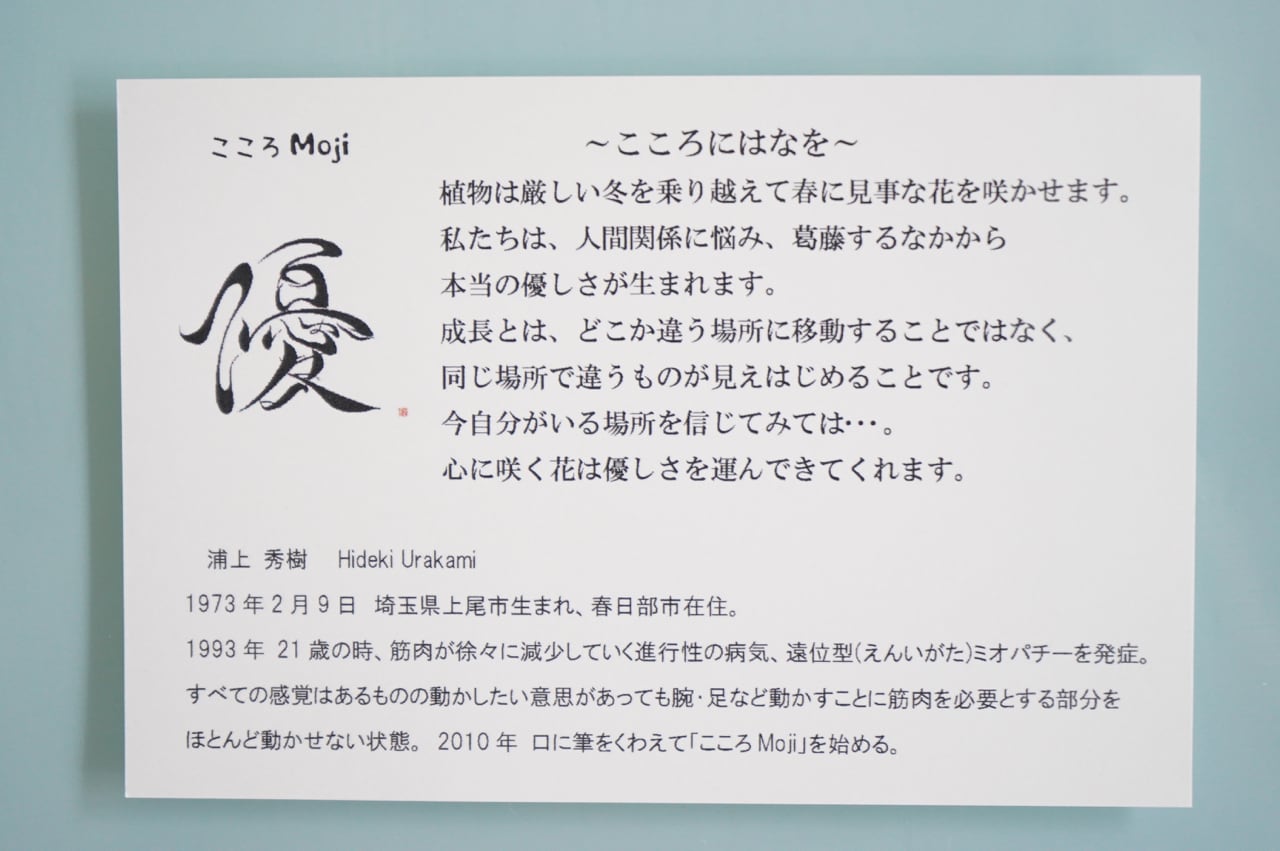 こころMoji
優
～こころにはなを～
植物は厳しい冬を乗り越えて春に見事な花を咲かせます。
私たちは、人間関係に悩み、葛藤するなかから
本当の優しさが生まれます。
成長とは、どこか違う場所に移動することではなく、
同じ場所で違うものが見えはじめることです。
今自分がいる場所を信じてみては・・・。
心に咲く花は優しさを運んできてくれます。
浦上 秀樹 Hideki Urakami
1973年2月9日 埼玉県上尾市生まれ、春日部市在住。
1993年 21歳の時、筋肉が徐々に減少していく進行性の病気、遠位型(えんいがた)ミオパチーを発症。
すべての感覚はあるものの動かしたい意思があっても腕・足など動かすことに筋肉を必要とする部分を
ほとんど動かせない状態。 2010年 口に筆をくわえて「こころMoji」を始める。